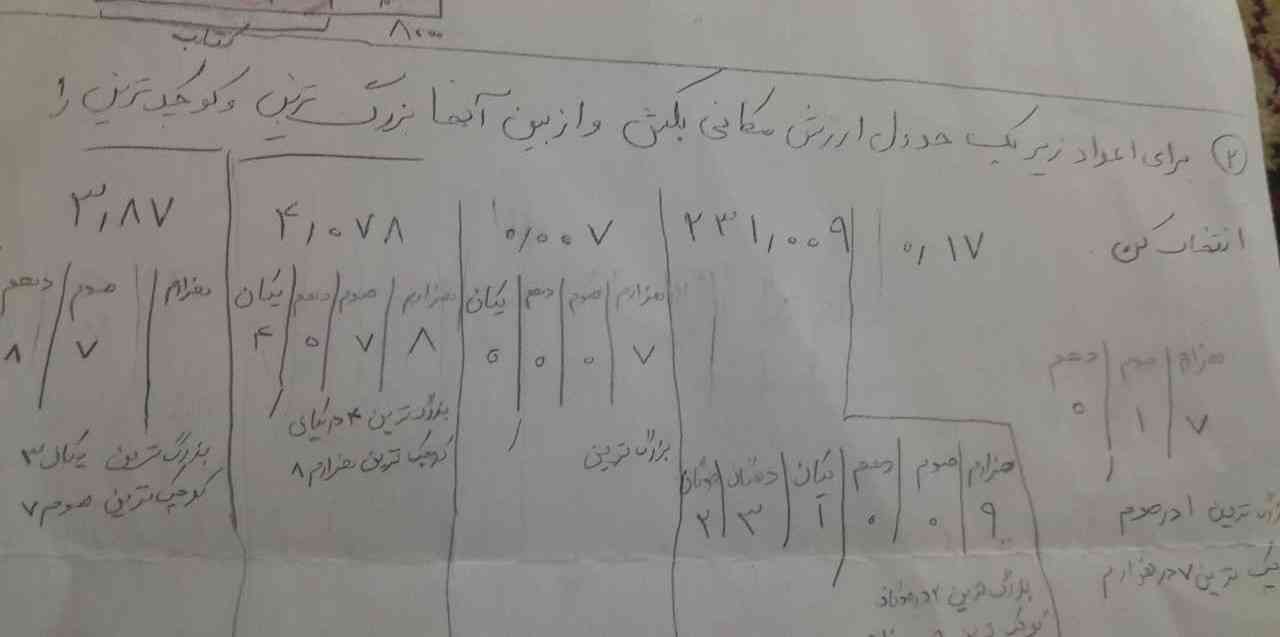 کتاب
۸۰۰۰
۲ برای اعداد زیر یک جدول ارزش مکانی بکش و از بین آنها بزرگ ترین و کوچک ترین را
انتخاب کن.
۰٫۱۷
۲۳۱٫۰۰۹
۰٫۰۰۷
۴٫۰۷۸
۳٫۸۷
هزارم صدم دهم
۷ ۱ ۰
ترین ۱ در صدم
ترین ۷ در هزارم
هزارم صدم دهم یکان دهگان صدگان
۹ ۰ ۰ ۱ ۳ ۲
بزرگ ترین ۲ در
هزارم صدم دهم یکان
۷ ۰ ۰ ۰
بزرگ ترین
هزارم صدم دهم یکان
۸ ۷ ۰ ۴
بزرگ ترین ۴ در یکان
کوچک ترین هزارم ۸
هزارم صدم دهم
۷ ۸
بزرگ ترین یکان ۳
کوچک ترین صدم ۷